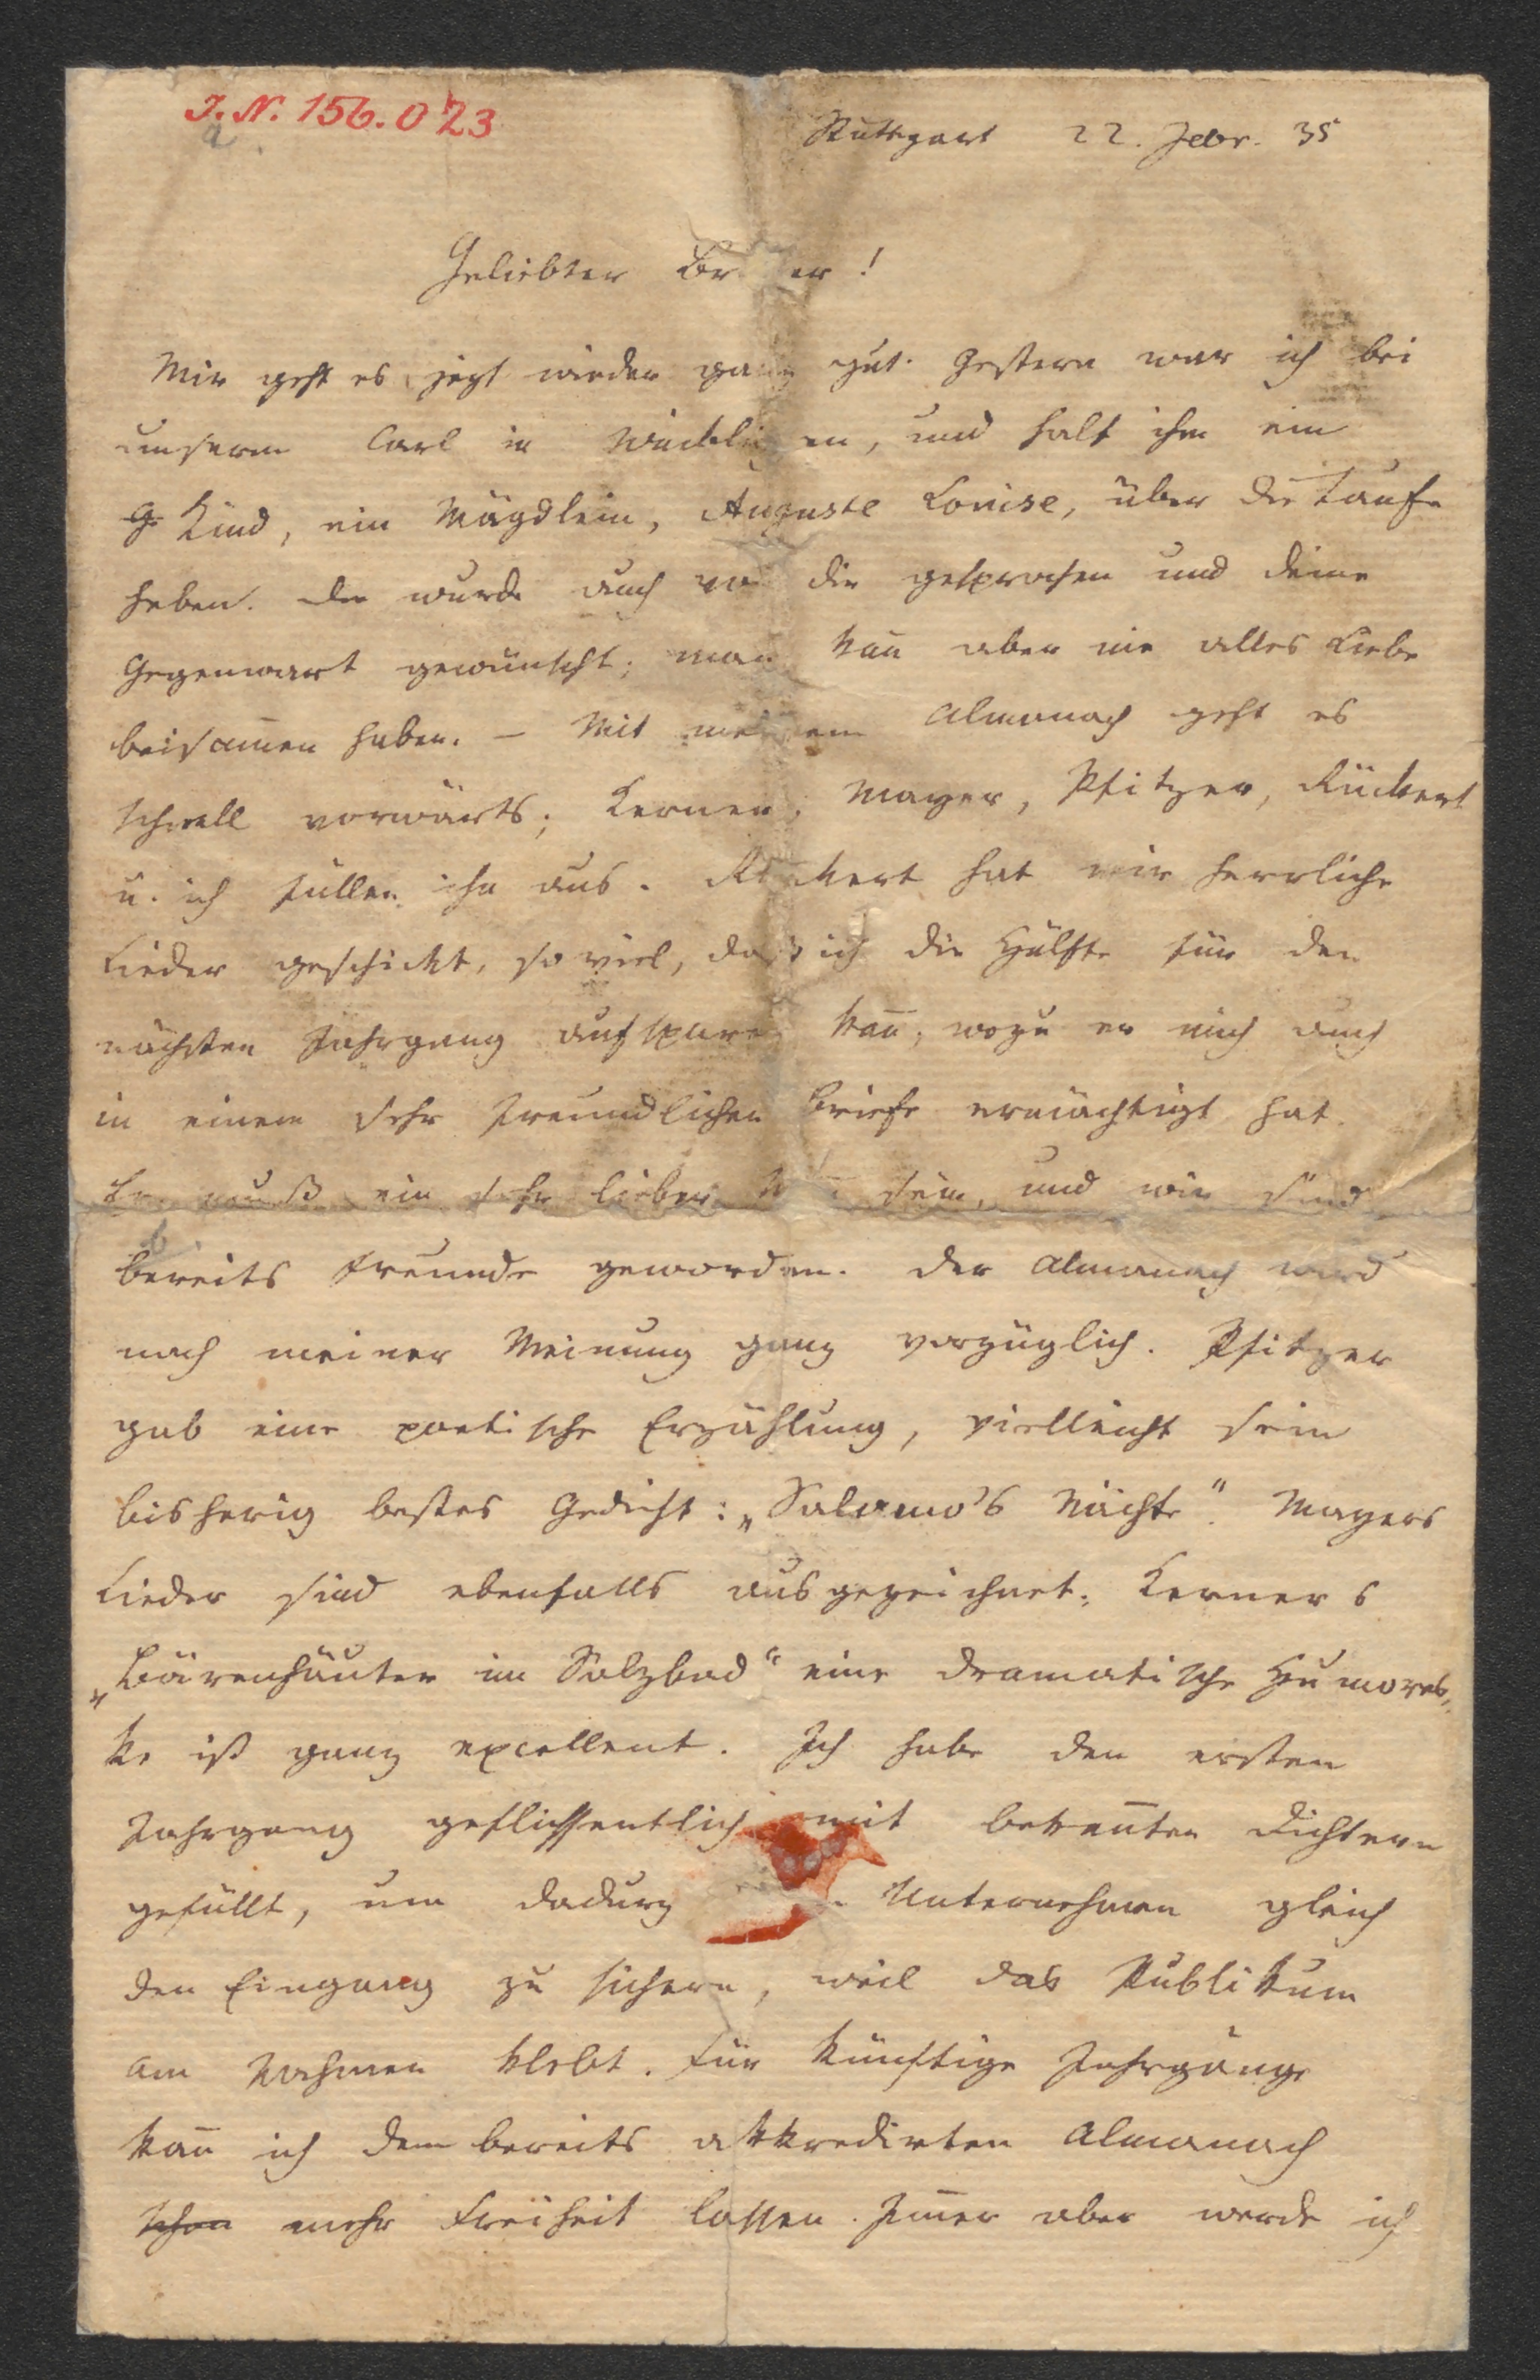 J. N. 156.023
a.
Stuttgart 22. Febr. 35
Geliebter Br er!
Mir geht es jezt wieder ganz gut. Gestern war ich bei
unserm Carl in , und half ihm ein
G Kind, ein Mägdlein, Auguste Louise, über die Taufe
heben. Da wurde auch von dir gesprochen und deine
Gegenwart gewünscht; man kan̄ aber nie alles Liebe
beisam̄en haben. – Mit meinem Almanach geht es
schnell vorwärts; Kerner, Mayer, Pfitzer, Rückert
u. ich füllen ihn aus. Rückert hat mir herrliche
Lieder geschickt, so viel, daß ich die Hälfte für den
nächsten Jahrgang aufsparen kan̄, wozu er mich auch
in einem sehr freundlichen Briefe ermächtigt hat.
Er muß ein sehr lieber sein, und wir sind
b.
bereits Freunde geworden. Der Almanach wird
nach meiner Meinung ganz vorzüglich. Pfitzer
gab eine poetische Erzählung, vielleicht sein
bisherig bestes Gedicht: „Salomo's Nächte“. Mayers
Lieder sind ebenfalls ausgezeichnet; Kerners
„Bärenhäuter im Salzbad“ eine dramatische Humores„
ke ist ganz excellent. Ich habe den ersten
Jahrgang geflissentlich mit bekan̄ten Dichtern
gefüllt, um dadurch Unternehmen gleich
den Eingang zu sichern, weil das Publikum
am Nahmen klebt. Für künftige Jahrgänge
kan̄ ich dem bereits akkredirten Almanach
schon mehr Freiheit lassen. Im̄er aber werde ich